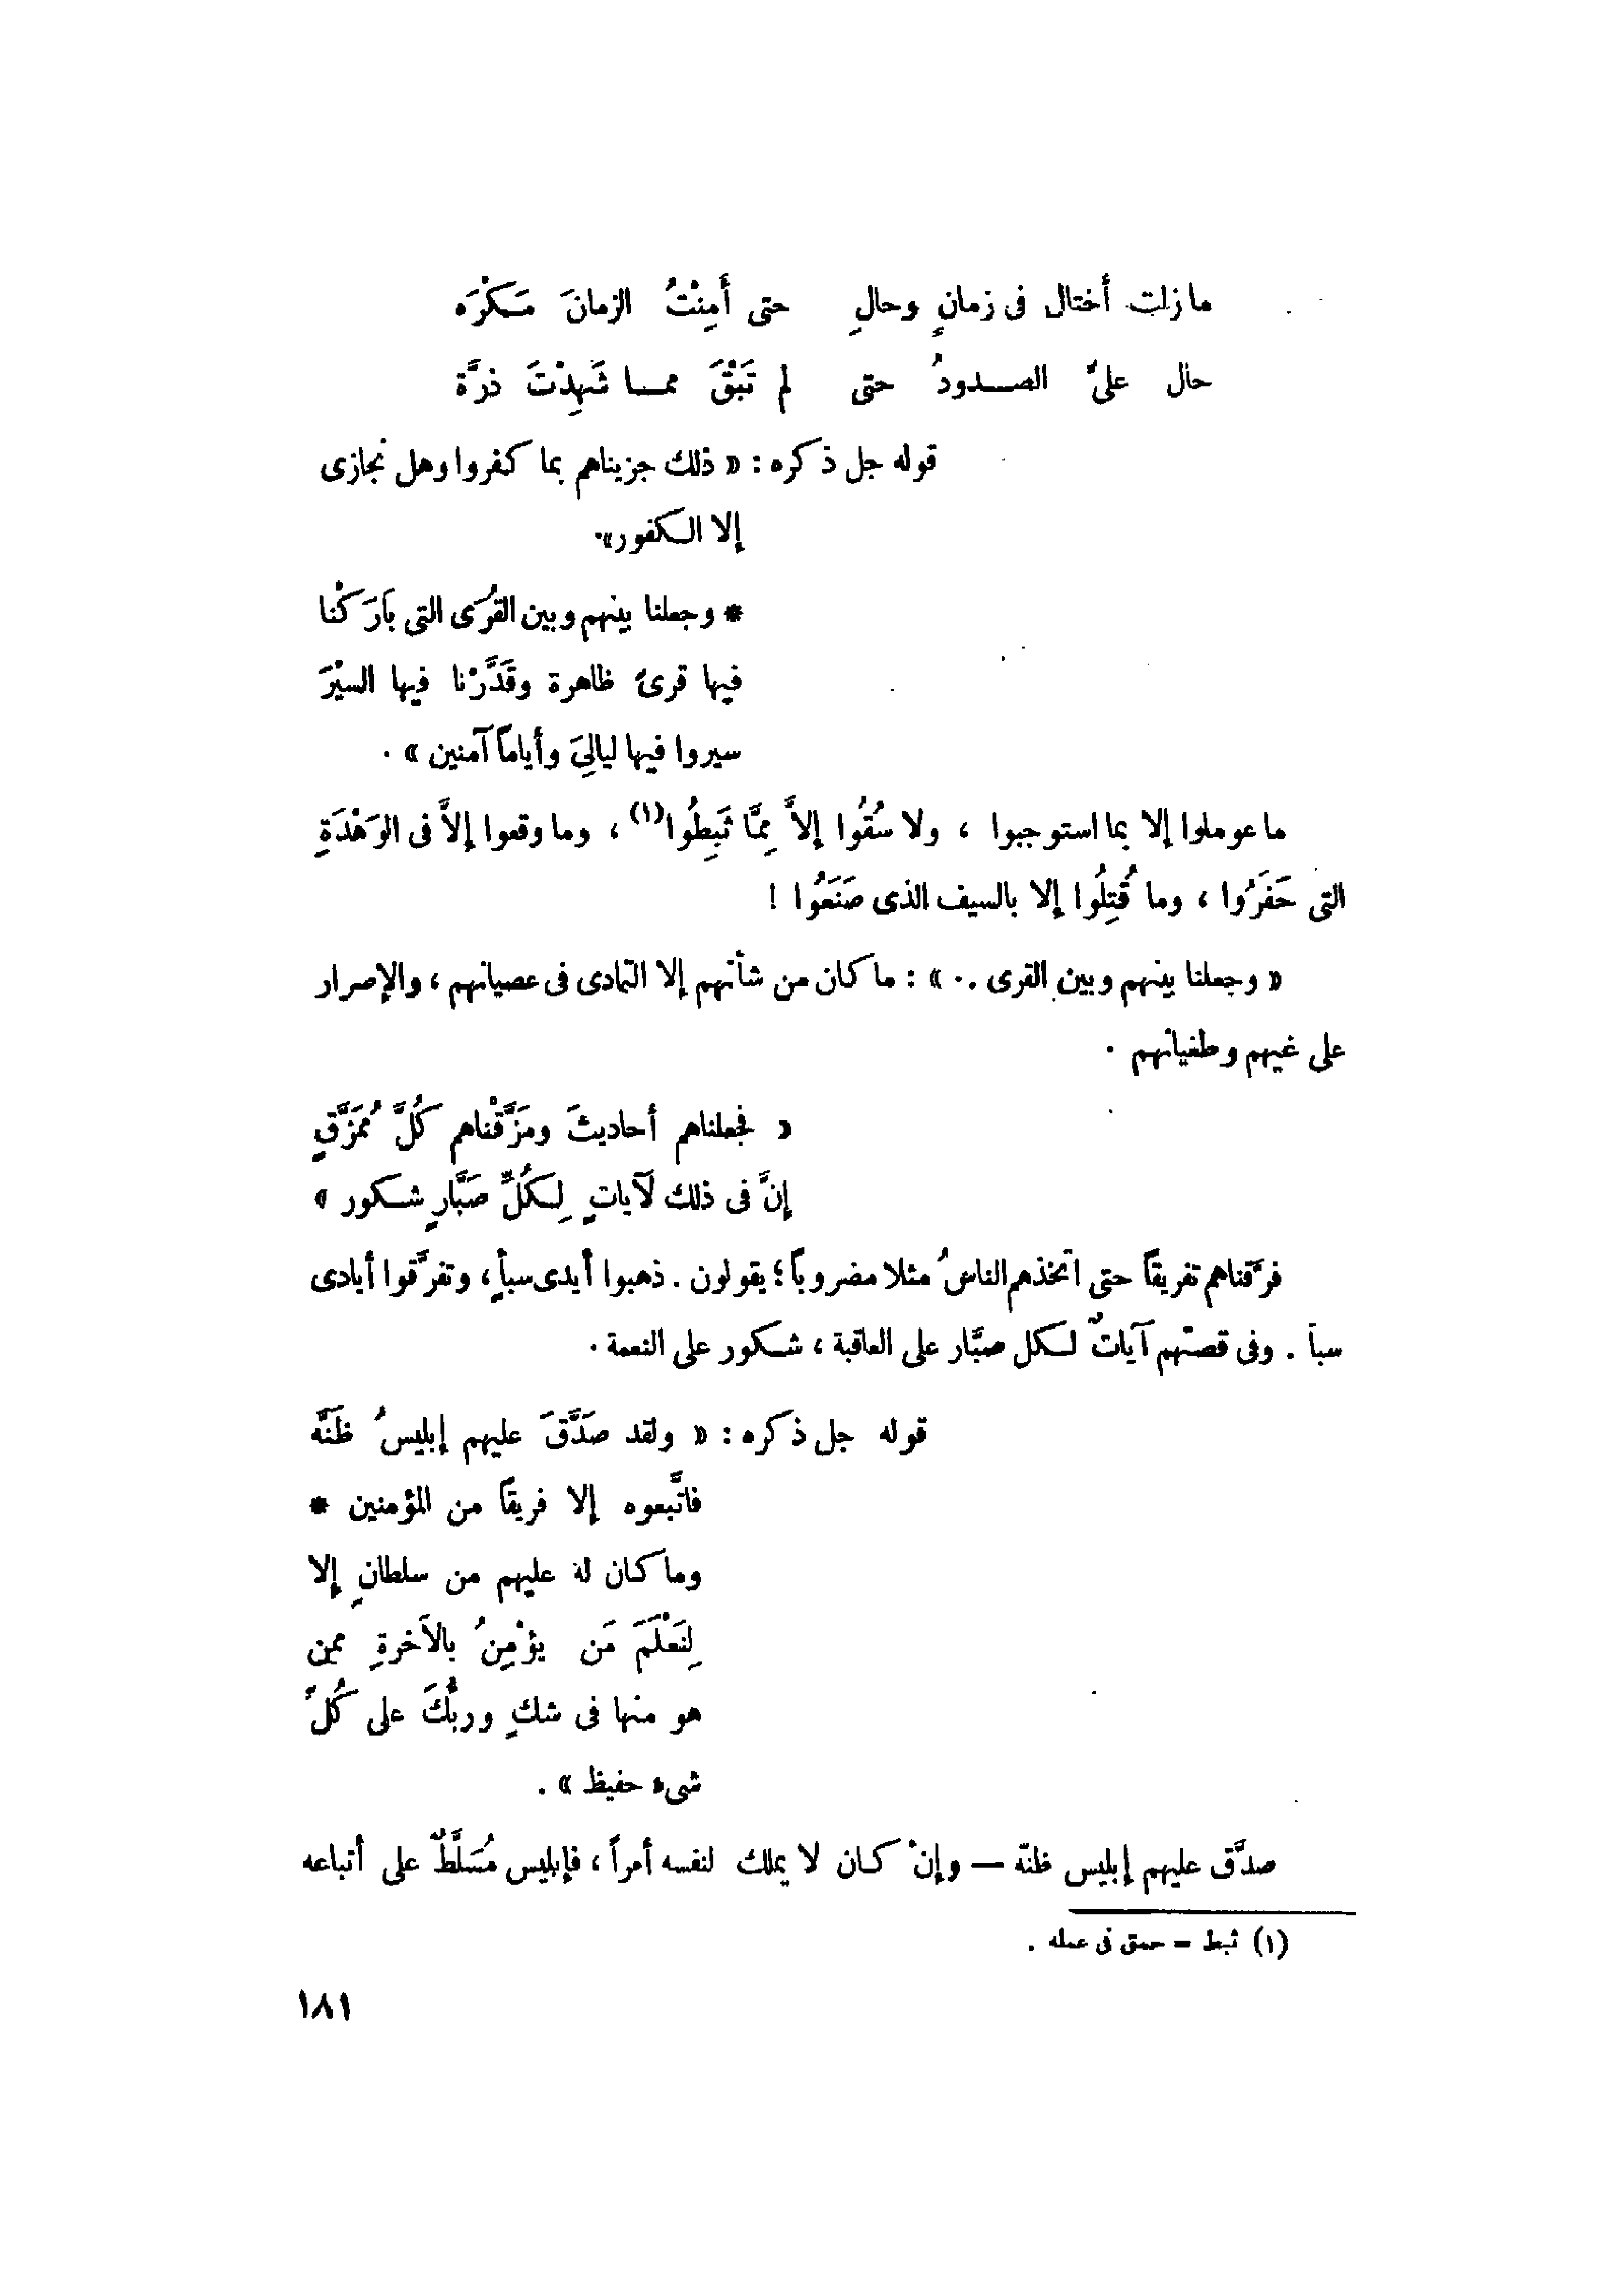 ما زلت أختال فى زمانٍ وحالِ حتى أَمِنْتُ الزمانَ مَكْرَه
حال علىَّ الصدودُ حتى لم تَبْقَ مما شَهِدْتَ ذرَّة
قوله جل ذكره : « ذلك جزيناهم بما كفروا وهل نجازى
إلا الكفور».
* وجعلنا بينهم وبين القُرَى التى بَارَكْنا
فيها قرىً ظاهرة وقَدَّرْنا فيها السيْرَ
سيروا فيها ليالِىَ وأياماً آمنين » .
ما عوملوا إلا بما استوجبوا ، ولا سُقُوا إلاَّ مِمَّا ثَبِطُوا(١) ، وما وقعوا إلاَّ فى الوَهْدَةِ
التى حَفَرُوا ، وما قُتِلُوا إلا بالسيف الذى صَنَعُوا !
« وجعلنا بينهم وبين القرى .. » : ما كان من شأنهم إلا التمادى فى عصيانهم ، والإصرار
على غيهم وطغيانهم .
« فجعلناهم أحاديثَ ومَزَّقْناهم كُلَّ مُمَزَّقٍ
إنَّ فى ذلك لَآياتٍ لِكُلِّ صَبَّارٍ شكور »
فرَّقناهم تفريقاً حتى اتخذهم الناسُ مثلا مضروباً ؛ يقولون . ذهبوا أيدى سبأٍ ، وتفرَّقوا أيادى
سبأ . وفى قصتهم آياتٌ لكل صبَّار على العاقبة ، شكور على النعمة .
قوله جل ذكره : « ولقد صَدَّقَ عليهم إبليسُ ظَنَّه
فاتَّبعوه إلا فريقاً من المؤمنين *
وما كان له عليهم من سلطانٍ إلا
لِنَعْلَمَ مَن يؤْمِنُ بالآخرةِ ممن
هو منها فى شكٍ وربُّكَ على كُلِّ
شىء حفيظ » .
صدَّق عليهم إبليس ظنه — وإنْ كان لا يملك لنفسه أمراً ، فإبليس مُسَلَّطٌ على أتباعه
(١) ثبط = حمق فى عمله .
١٨١